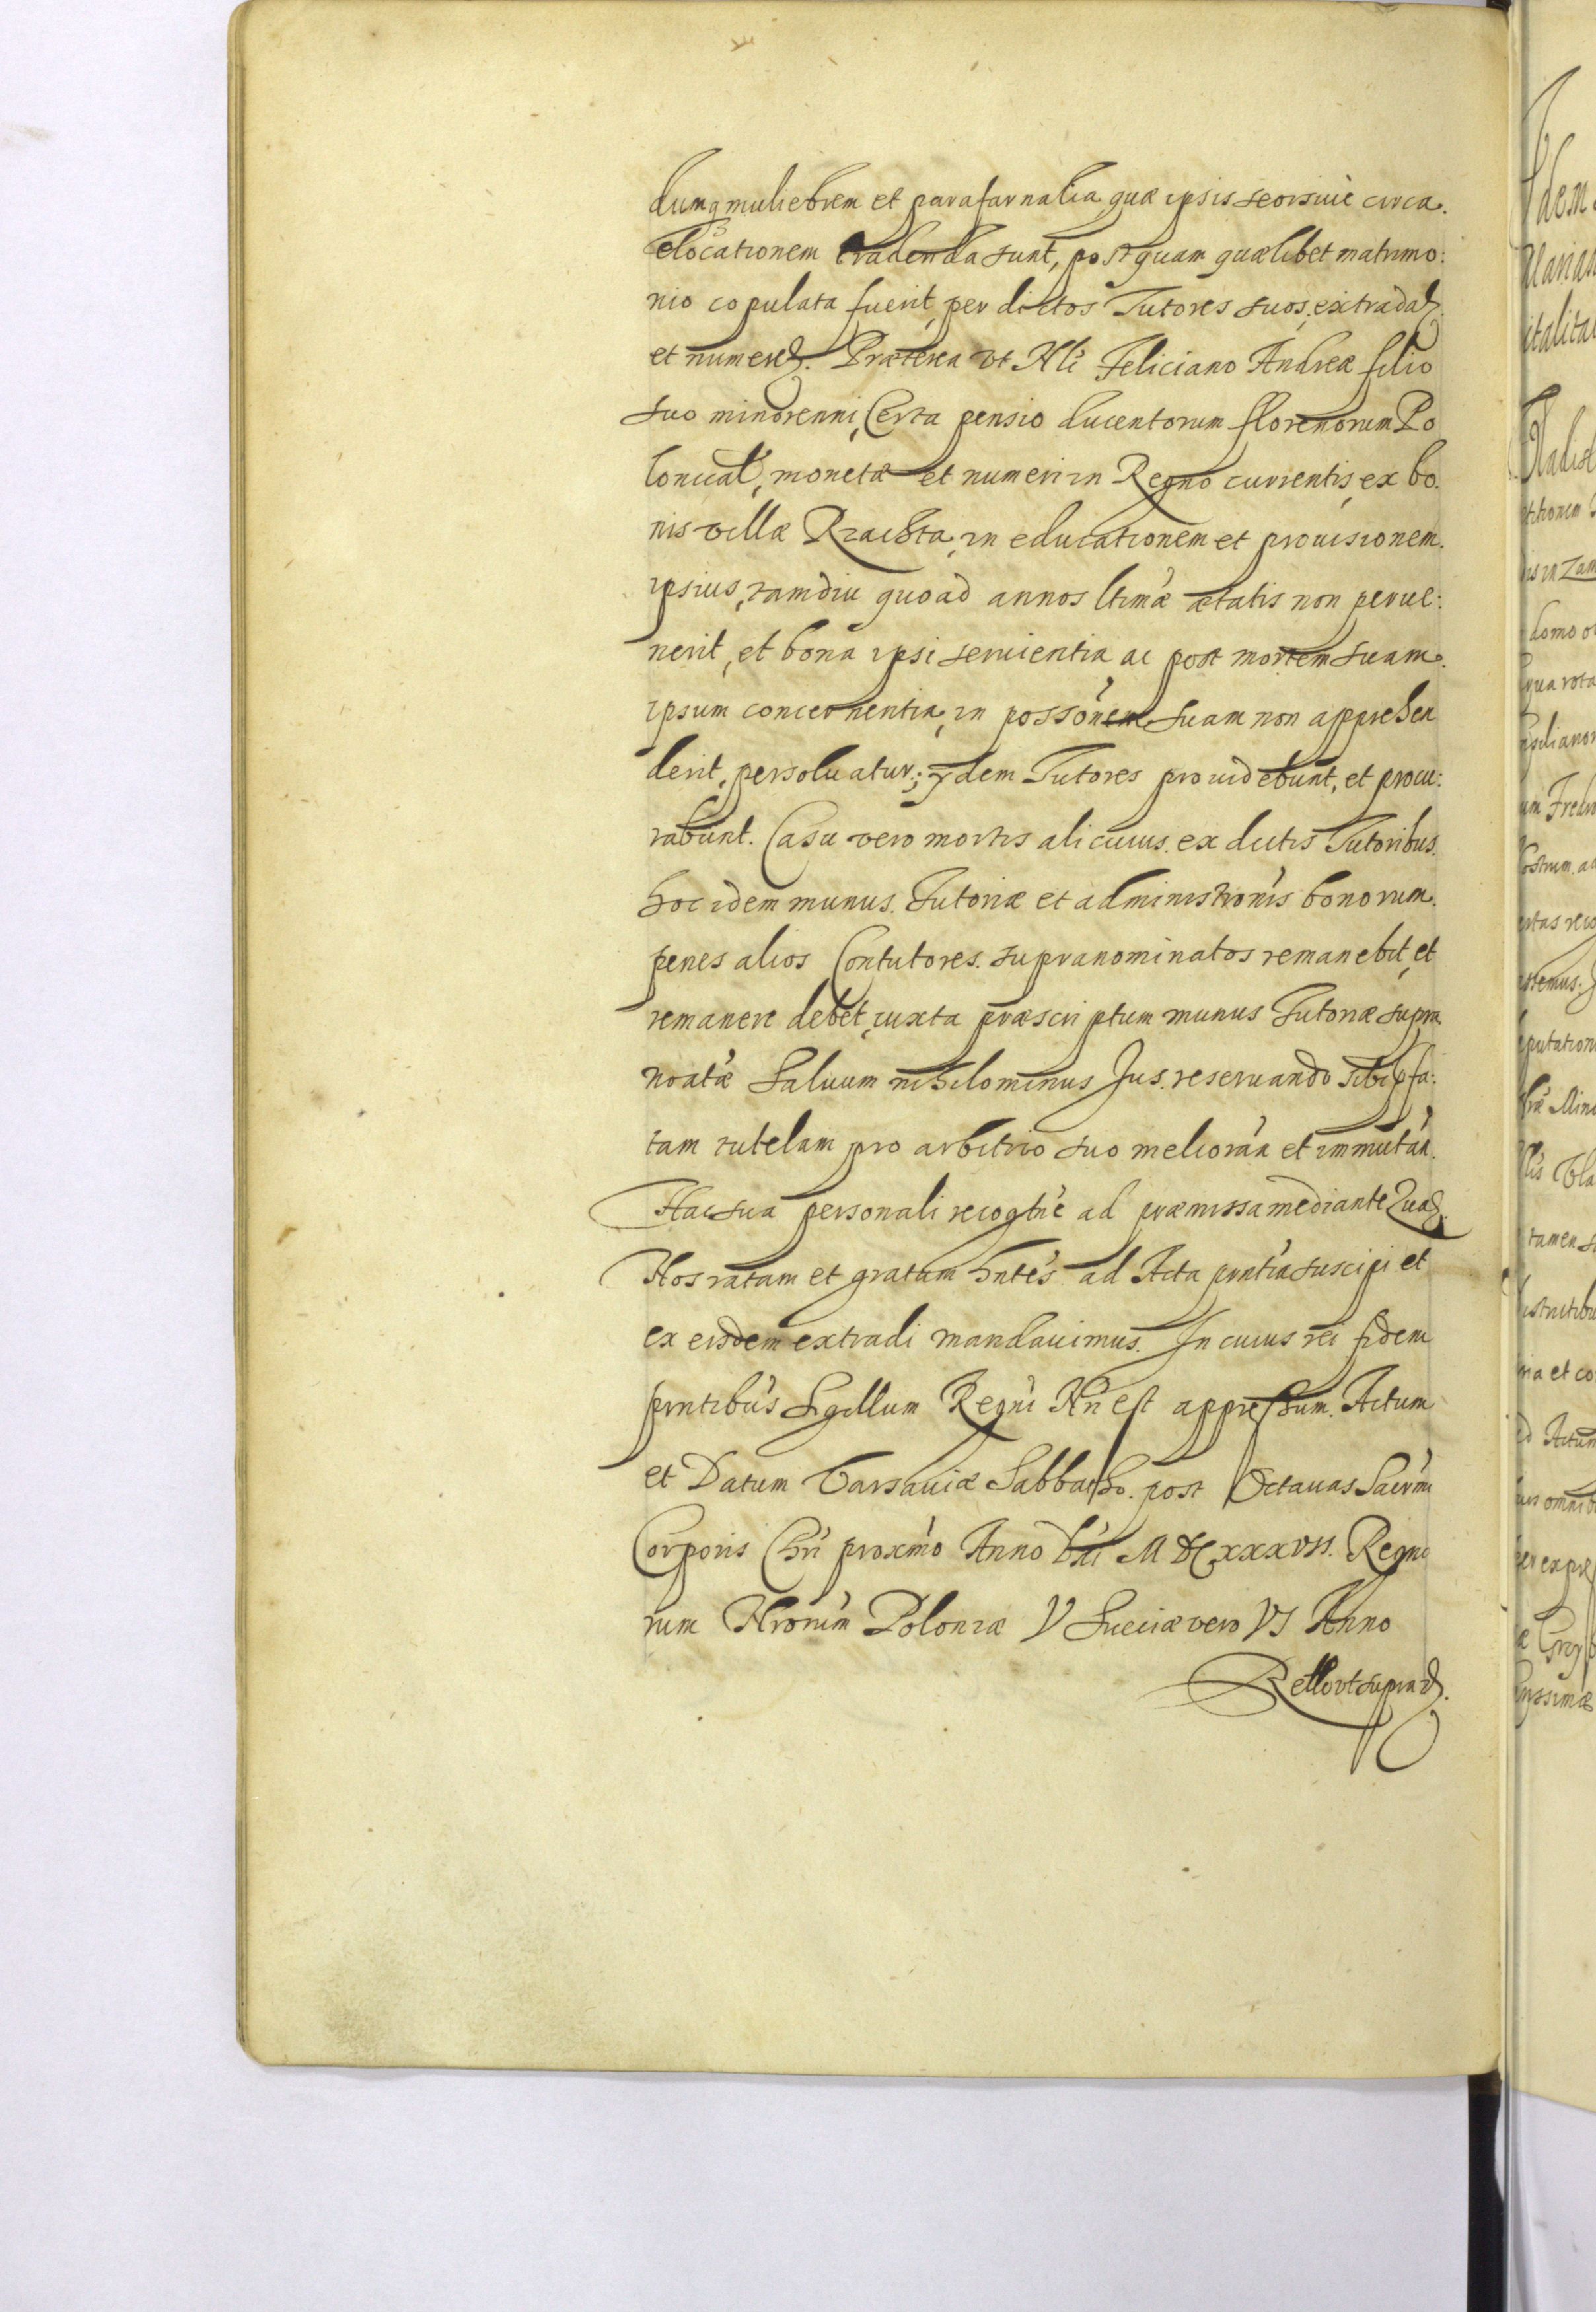 dumq muliebrem et parafarnalia quæ ipsis seorsiuè circa.
elocationem tradenda sunt, post quam quælibet matrimo:
nio copulata fuerit, per dictos Tutores suos, extradat
et numeret. Præterea vt Nli Feliciano Andreæ filio
suo minorenni, Certa pensio ducentorum florenorum Po
lonical, monetæ et numeri in Regno currentis, ex bo.
nis villæ in educationem et prouisionem.
ipsius, tamdiu quoad annos ltimæ ætatis non perue:
nerit, et bona ipsi seruientia, ac post mortem suam.
ipsum concernentia, in possonem suam non apprehen
derit, persoluatur; ydem Tutores prouidebunt, et procu:
rabunt. Casu vero mortis alicuius. ex dictis Tutoribus.
hoc idem munus. Tutoriæ et administronis bonorum.
penes alios Contutores. supranominatos remanebit, et
remanere debet, iuxta præscriptum munus Tutoriæ supra
noatæ Saluum nihilominus Jus. reseruando sibi pfa:
tam tutelam pro arbitrio suo melioran et immutan.
Hac sua personali recogtne ad præmissa mediante Quam
Nos ratam et gratam hntes ad Acta pntia suscipi et
ex eisdem extradi mandauimus. In cuius rei fidem
pntibus Sigillum Regni Nri est appressum. Actum
et Datum Varsauiæ Sabbatho. post Octauas Sacrmi
Corporis Chri proximo Anno Dni M DC xxxvii. Regno
rum Nrorum Poloniæ V Sueciæ vero VI Anno